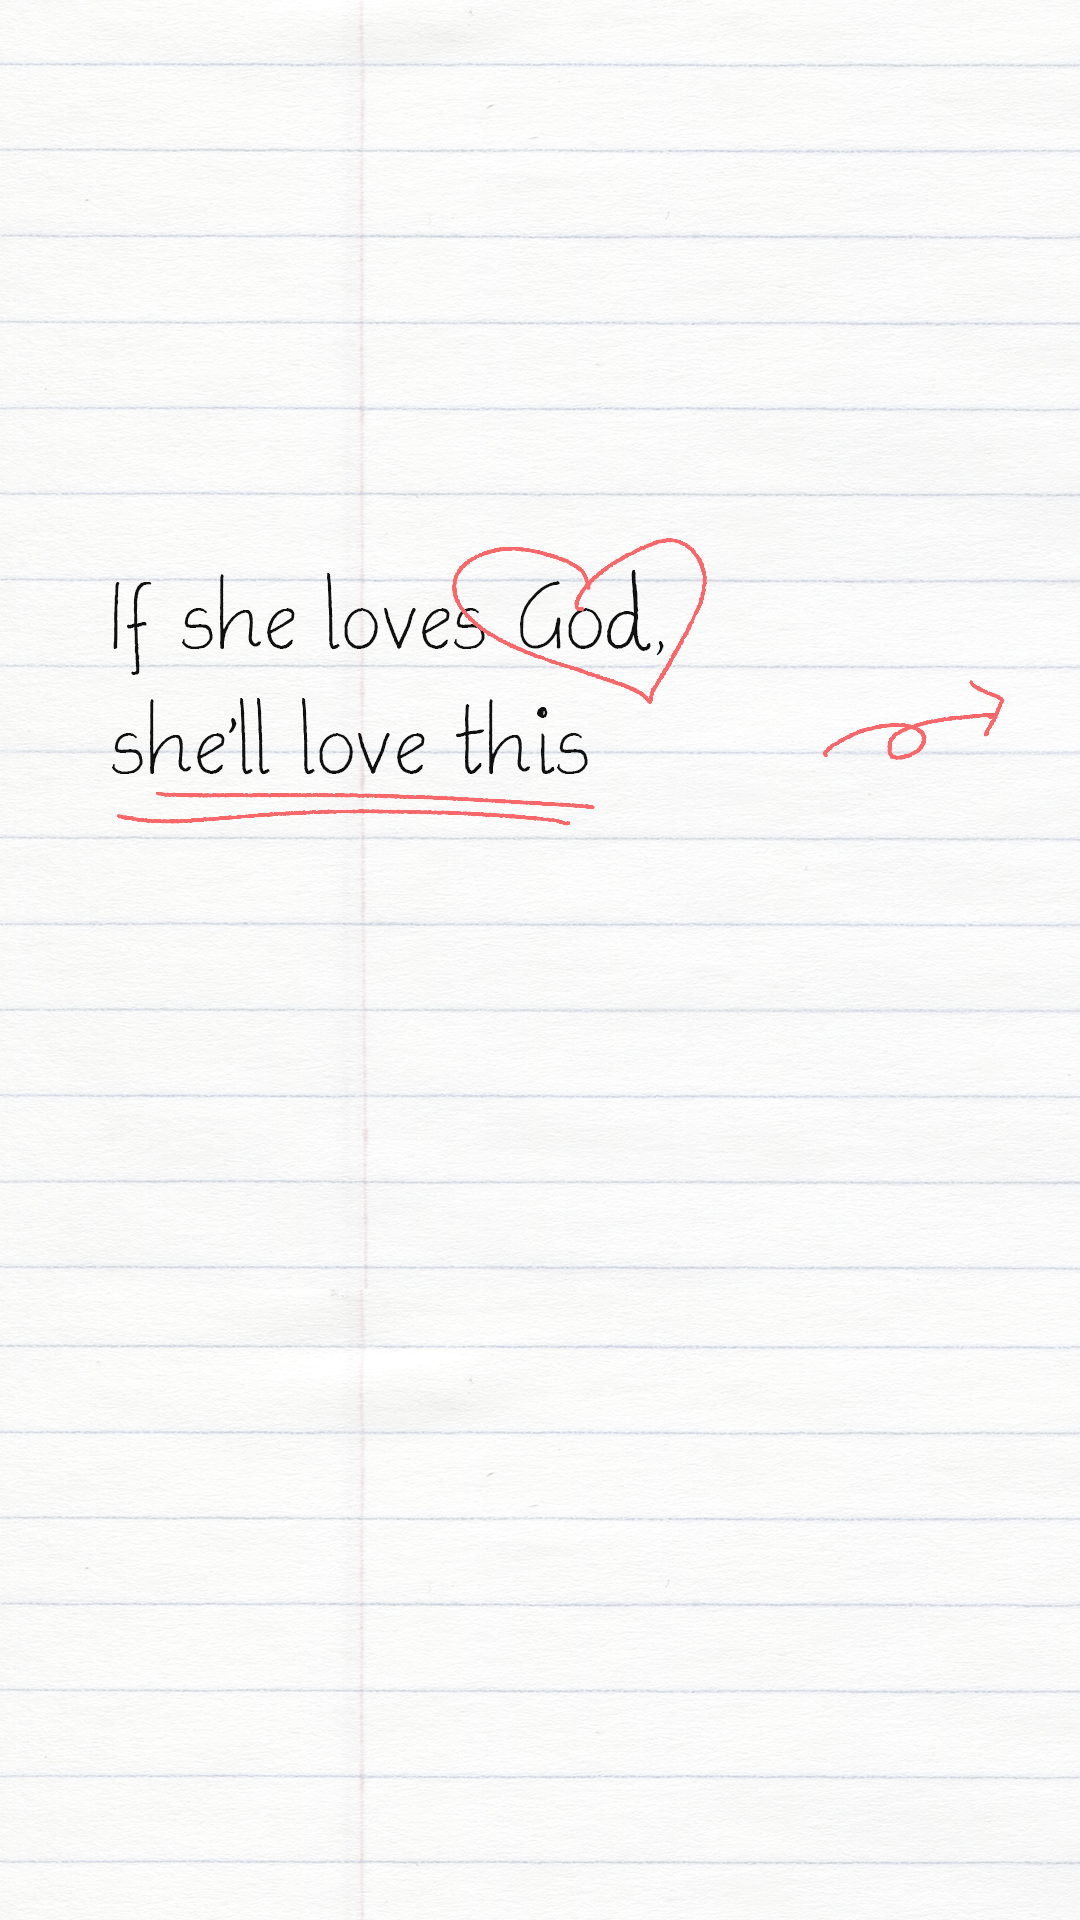 If she loves God,
she'll love this